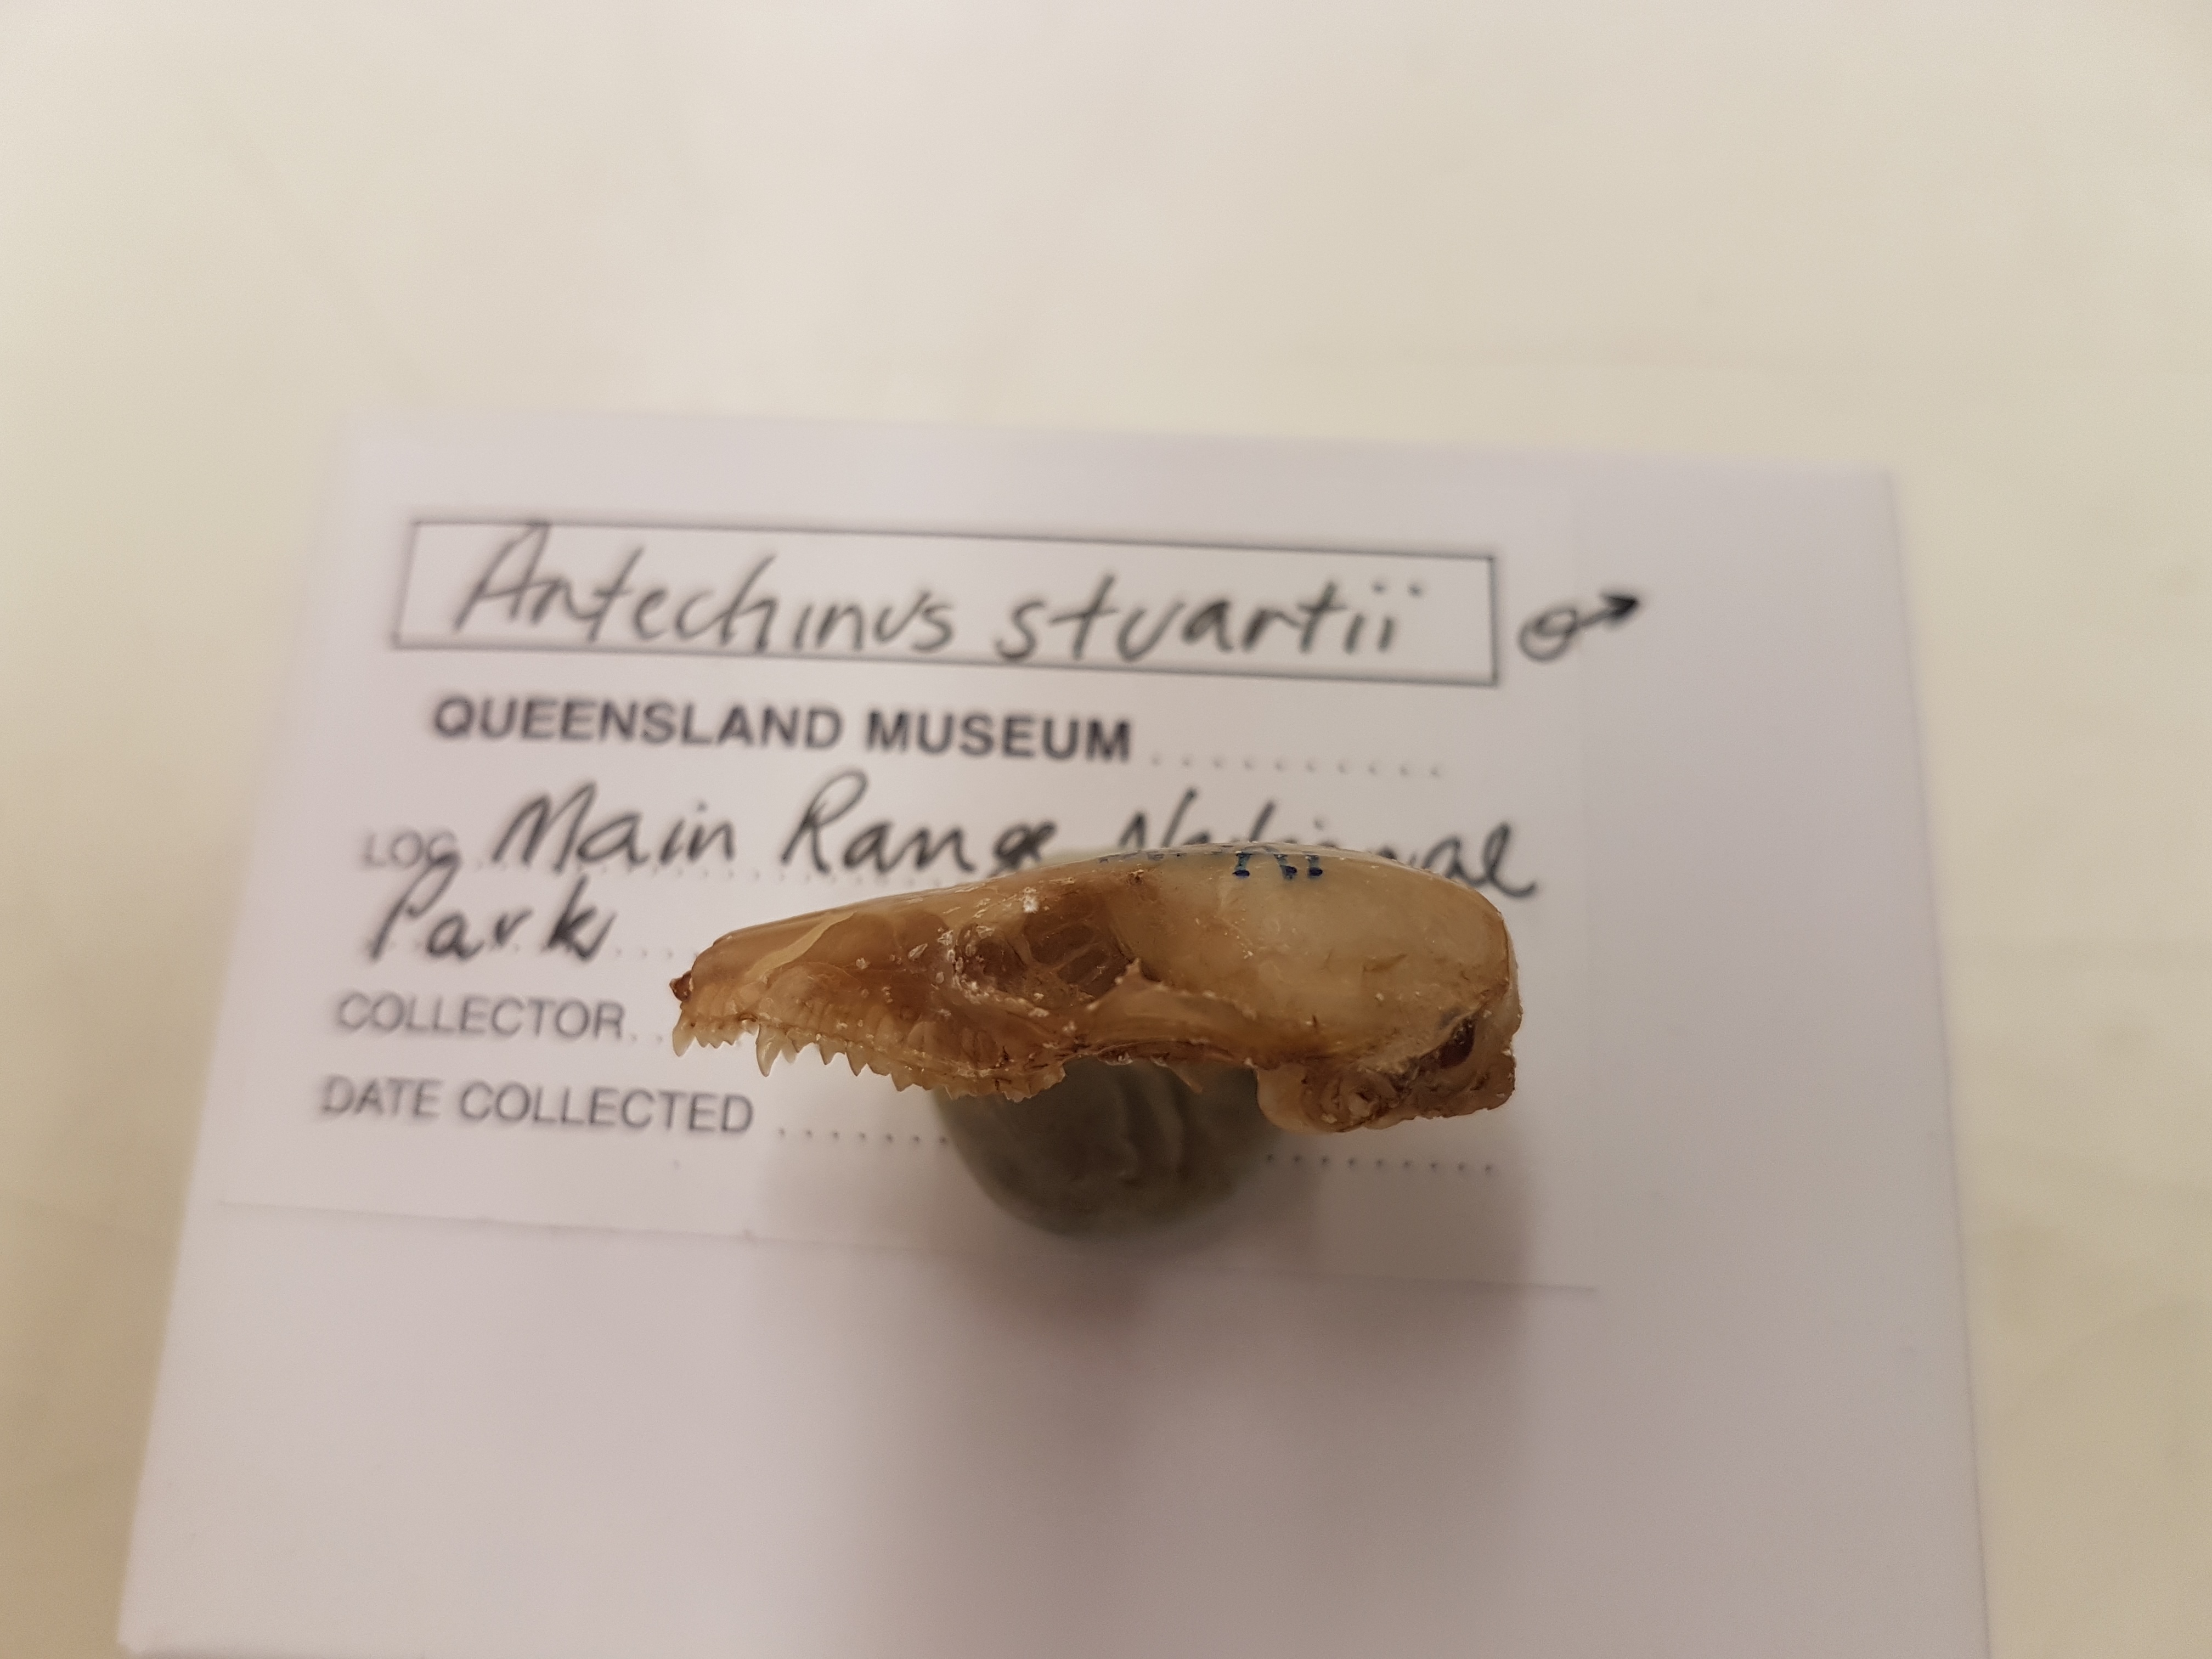 Antechinus stuartii ♂
QUEENSLAND MUSEUM
LOC. Main Range National
Park
COLLECTOR
DATE COLLECTED